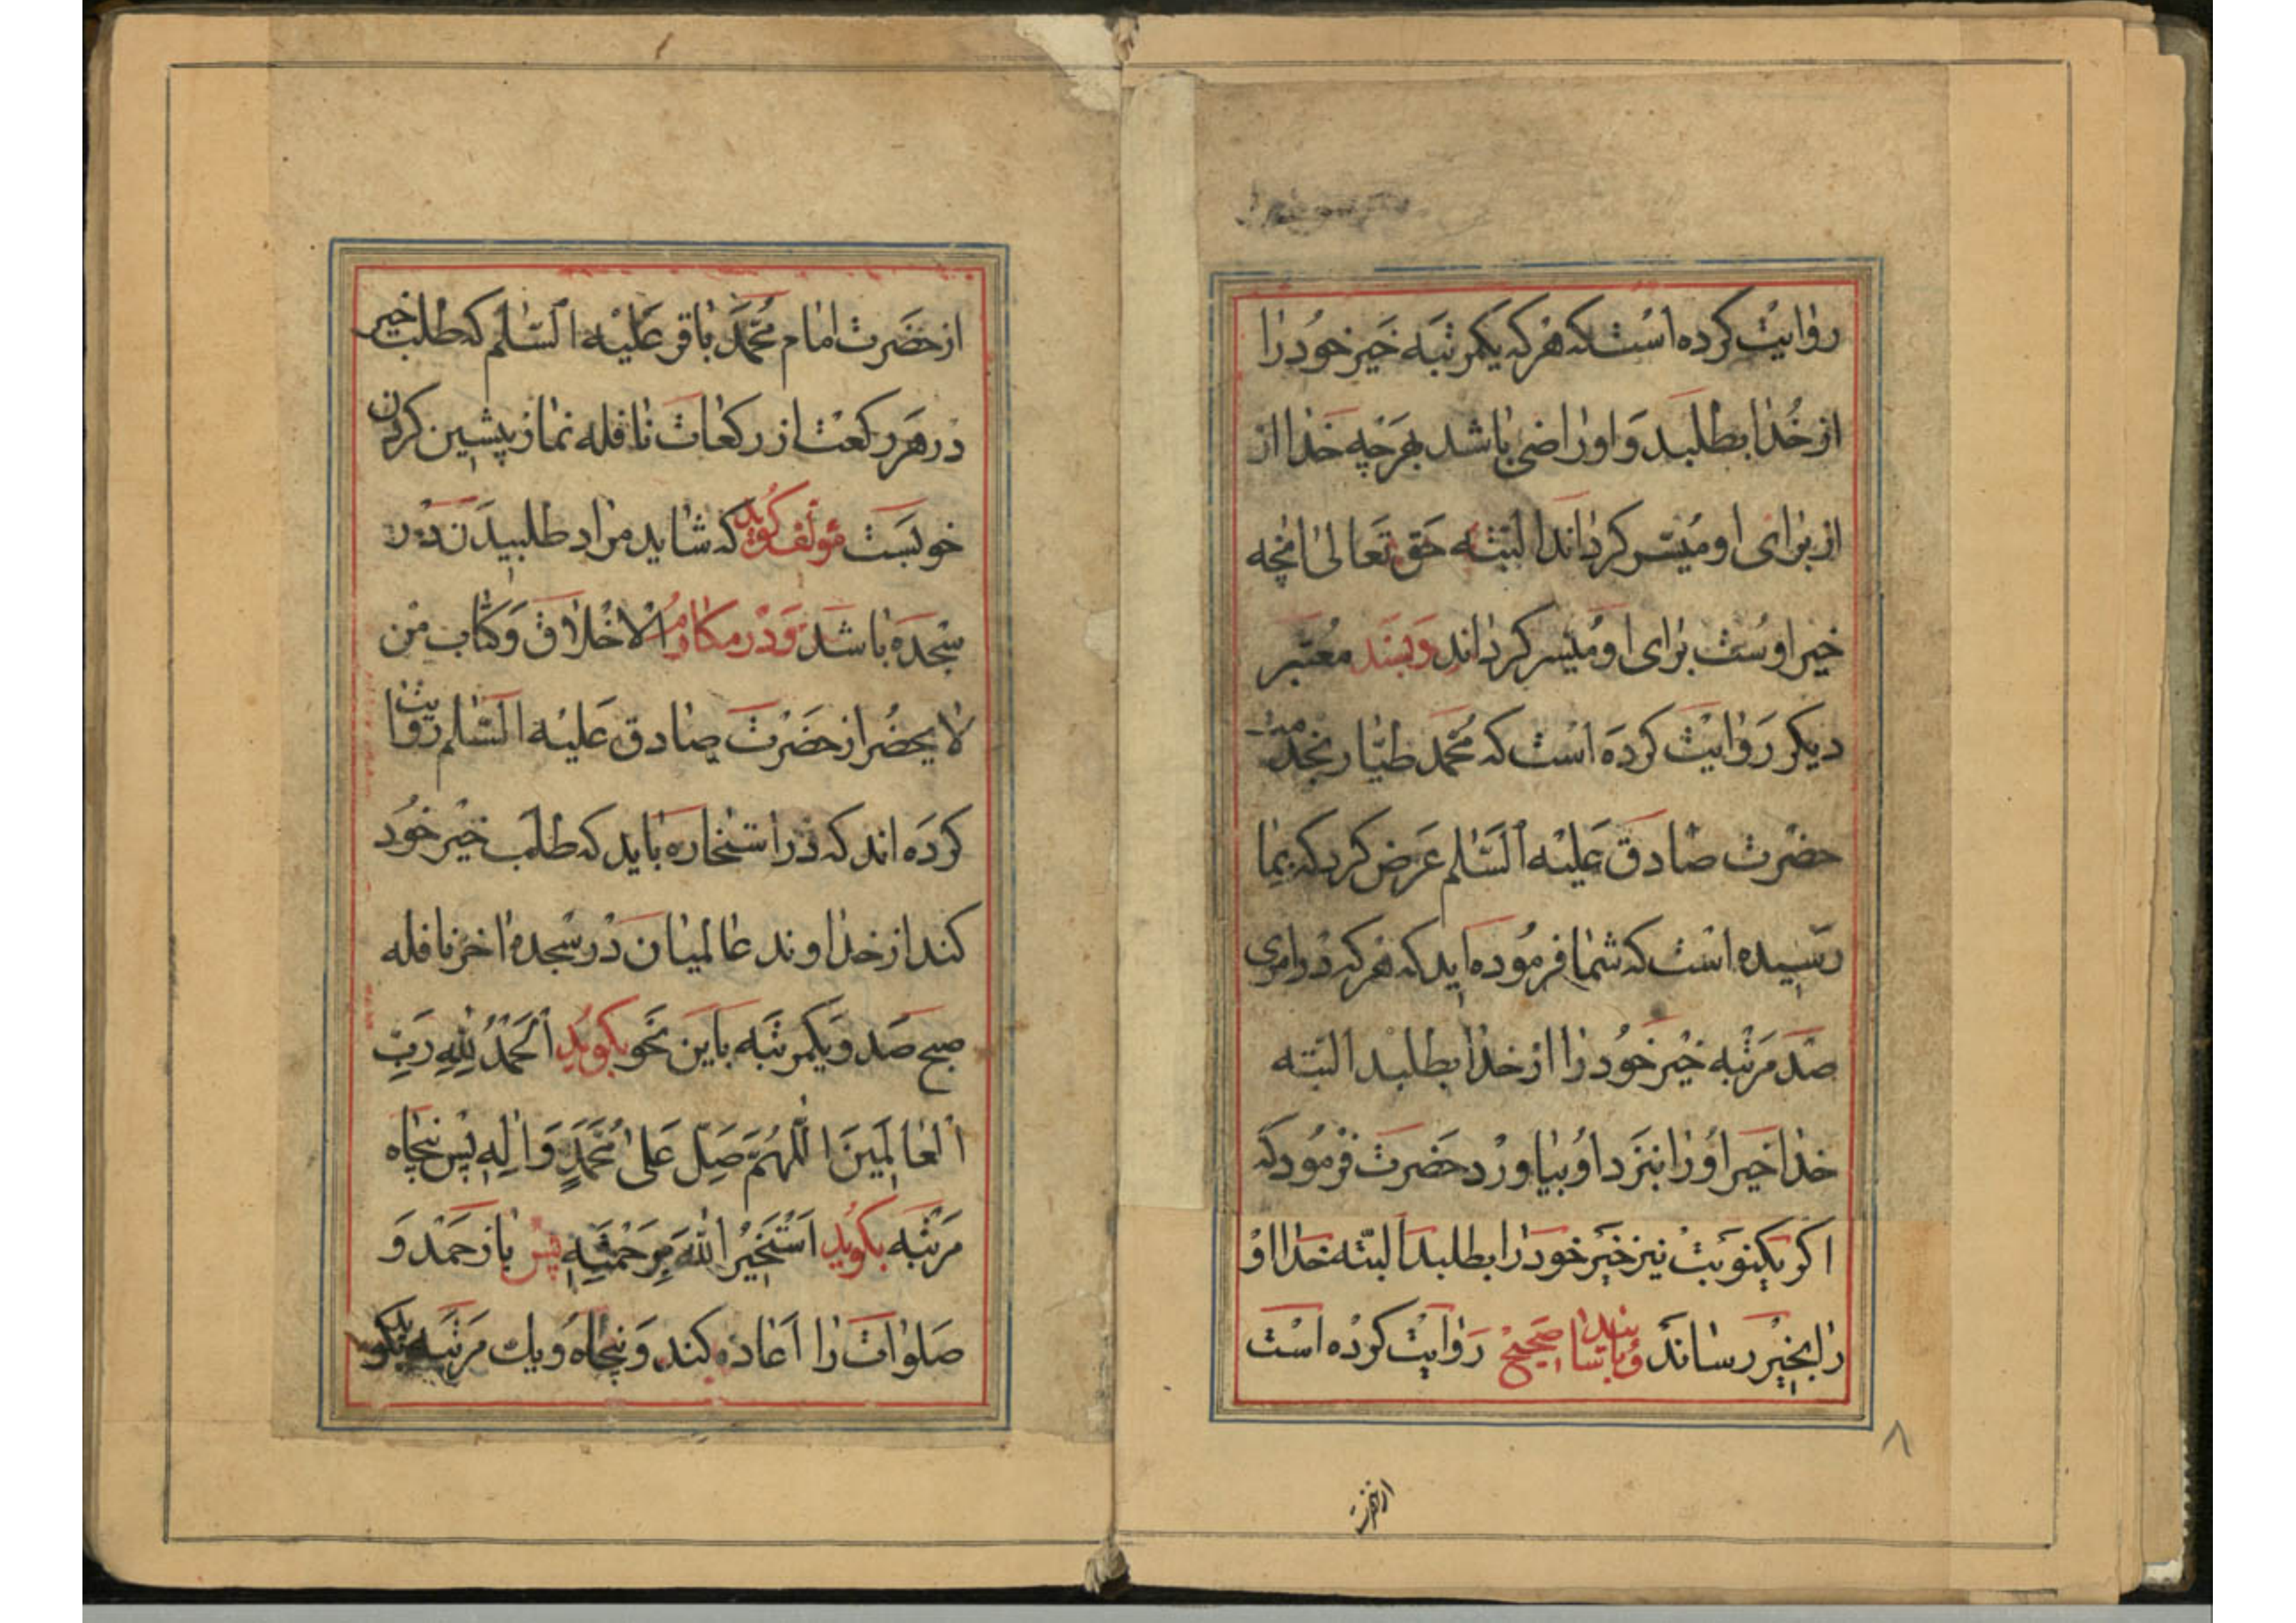 روایت کرده است که هر که یکمرتبه خیر خود را
از خدا بطلبد و او راضی باشد بهر چه خدا از
از برای او میسر کرداند البته حق تعالی انچه
خیر اوست برای او میسر کرداند و بسند معتبر
دیکر روایت کرده است که محمد طیار بخدمت
حضرت صادق علیه السلم عرض کرد که بما
رسیده است که شما فرموده اید که هر که در امری
صد مرتبه خیر خود را از خدا بطلبد البته
خدا خیر او را بنزد او بیاورد حضرت فرمود که
اکر یکنوبت نیز خیر خود را بطلبد البته خدا او
را بخیر رساند و باسناد صحیح روایت کرده است
از حضرت
۸
از حضرت امام محمد باقر علیه السلم که طلب خیر
در هر رکعت از رکعات نافله نماز پیشین کردن
خوبست مؤلف کوید که شاید مراد طلبیدن در
سجده باشد و در مکارم الاخلاق و کتاب من
لا یحضر از حضرت صادق علیه السلم روایت
کرده اند که در استخاره باید که طلب خیر خود
کند از خداوند عالمیان در سجده اخر نافله
صبح صد و یکمرتبه باین نحو بکوید الحمد لله رب
العالمین اللهم صل علی محمد و اله پس پنجاه
مرتبه بکوید استخیر الله برحمته پس باز حمد و
صلوات را اعاده کند و پنجاه و یك مرتبه بکوید